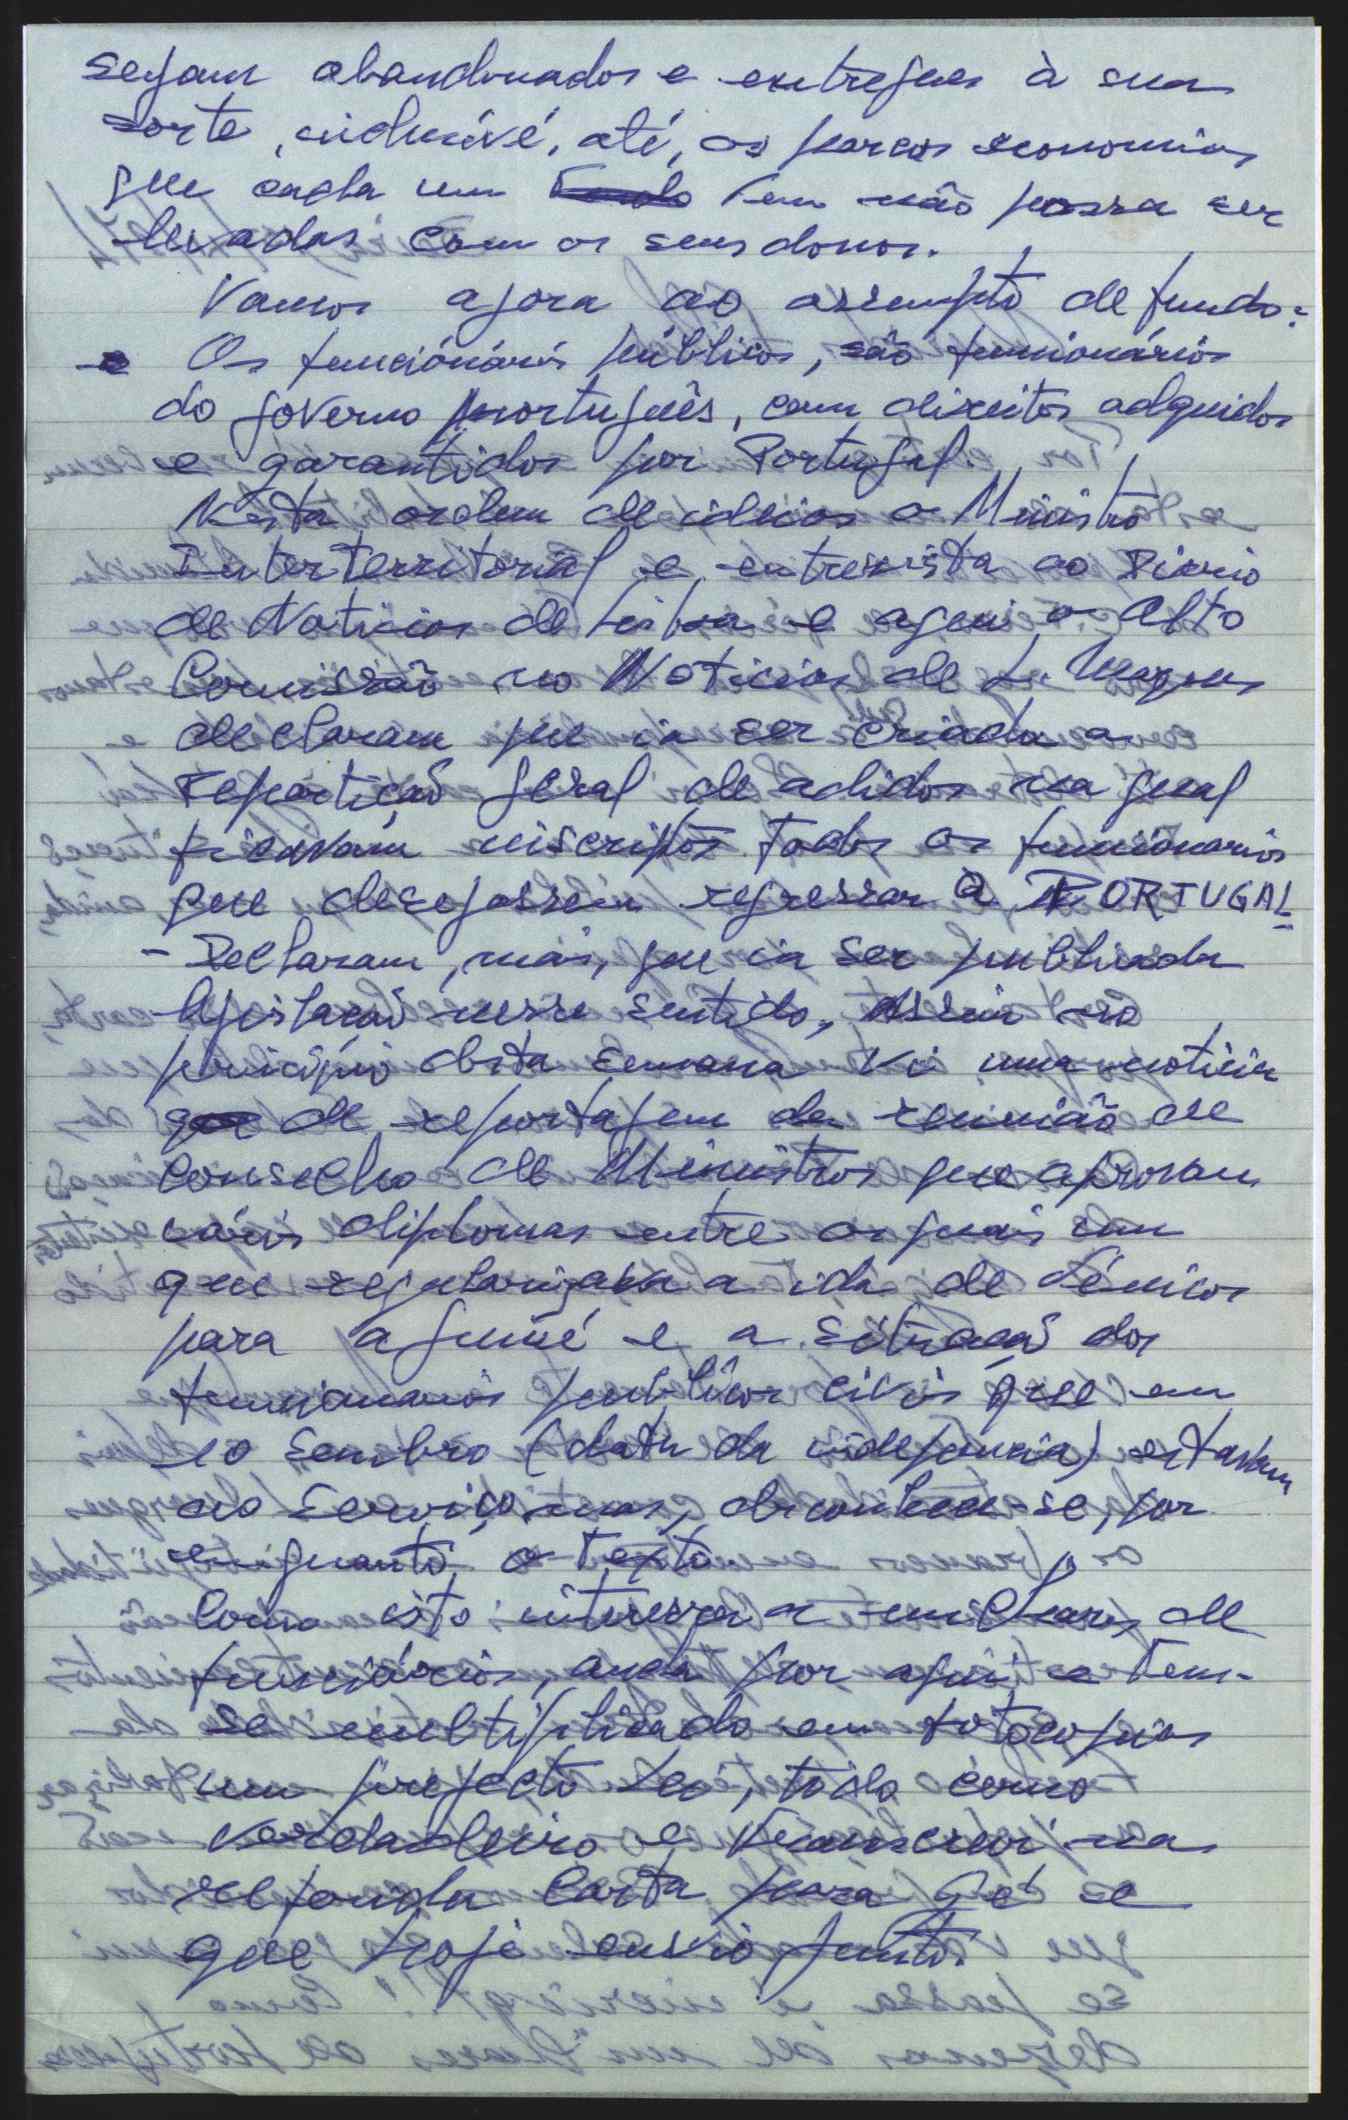 sejam abandonados e entregues à sua
sorte, inclusivé, até, as parcas economias
que cada um tem não possa ser
levadas com os seus donos.
Vamos agora ao assumpto de fundo:
Os funcionários públicos, são funcionários
do governo português, com direitos adquidos
e garantidos por Portugal.
Nesta ordem de ideias o Ministro
Interterritorial e entrevista ao Diario
de Noticias de Lisboa e aqui o Alto
Comissão no Noticias de L. Marques
declaram que ia ser criada a
repartição geral de adidos na qual
ficavam inscriptos todos os funcionarios
que desejassem regressar a PORTUGAL
- Declaram, mais, que ia ser publicada
legislação nesse sentido, Assim no
principio desta semana vi uma noticia
de reportagem da reunião de
Conselho de Ministros que aprovam
vários diplomas entre os quais um
que regularizava a ida de técnicos
para a Guiné e a situação dos
funcionarios publicos civis que em
10 Sembro (data da indepencia) estavam
ao serviço, mas, desconhece-se, por
enquanto, o texto.
Como isto interessa a milhares de
funciários, anda por aqui e tem-
se multiplicado em fotocopias
um projecto Lei, tido como
verdadeiro e transcrevi na
segunda carta para Zé e
que hoje envio junto.